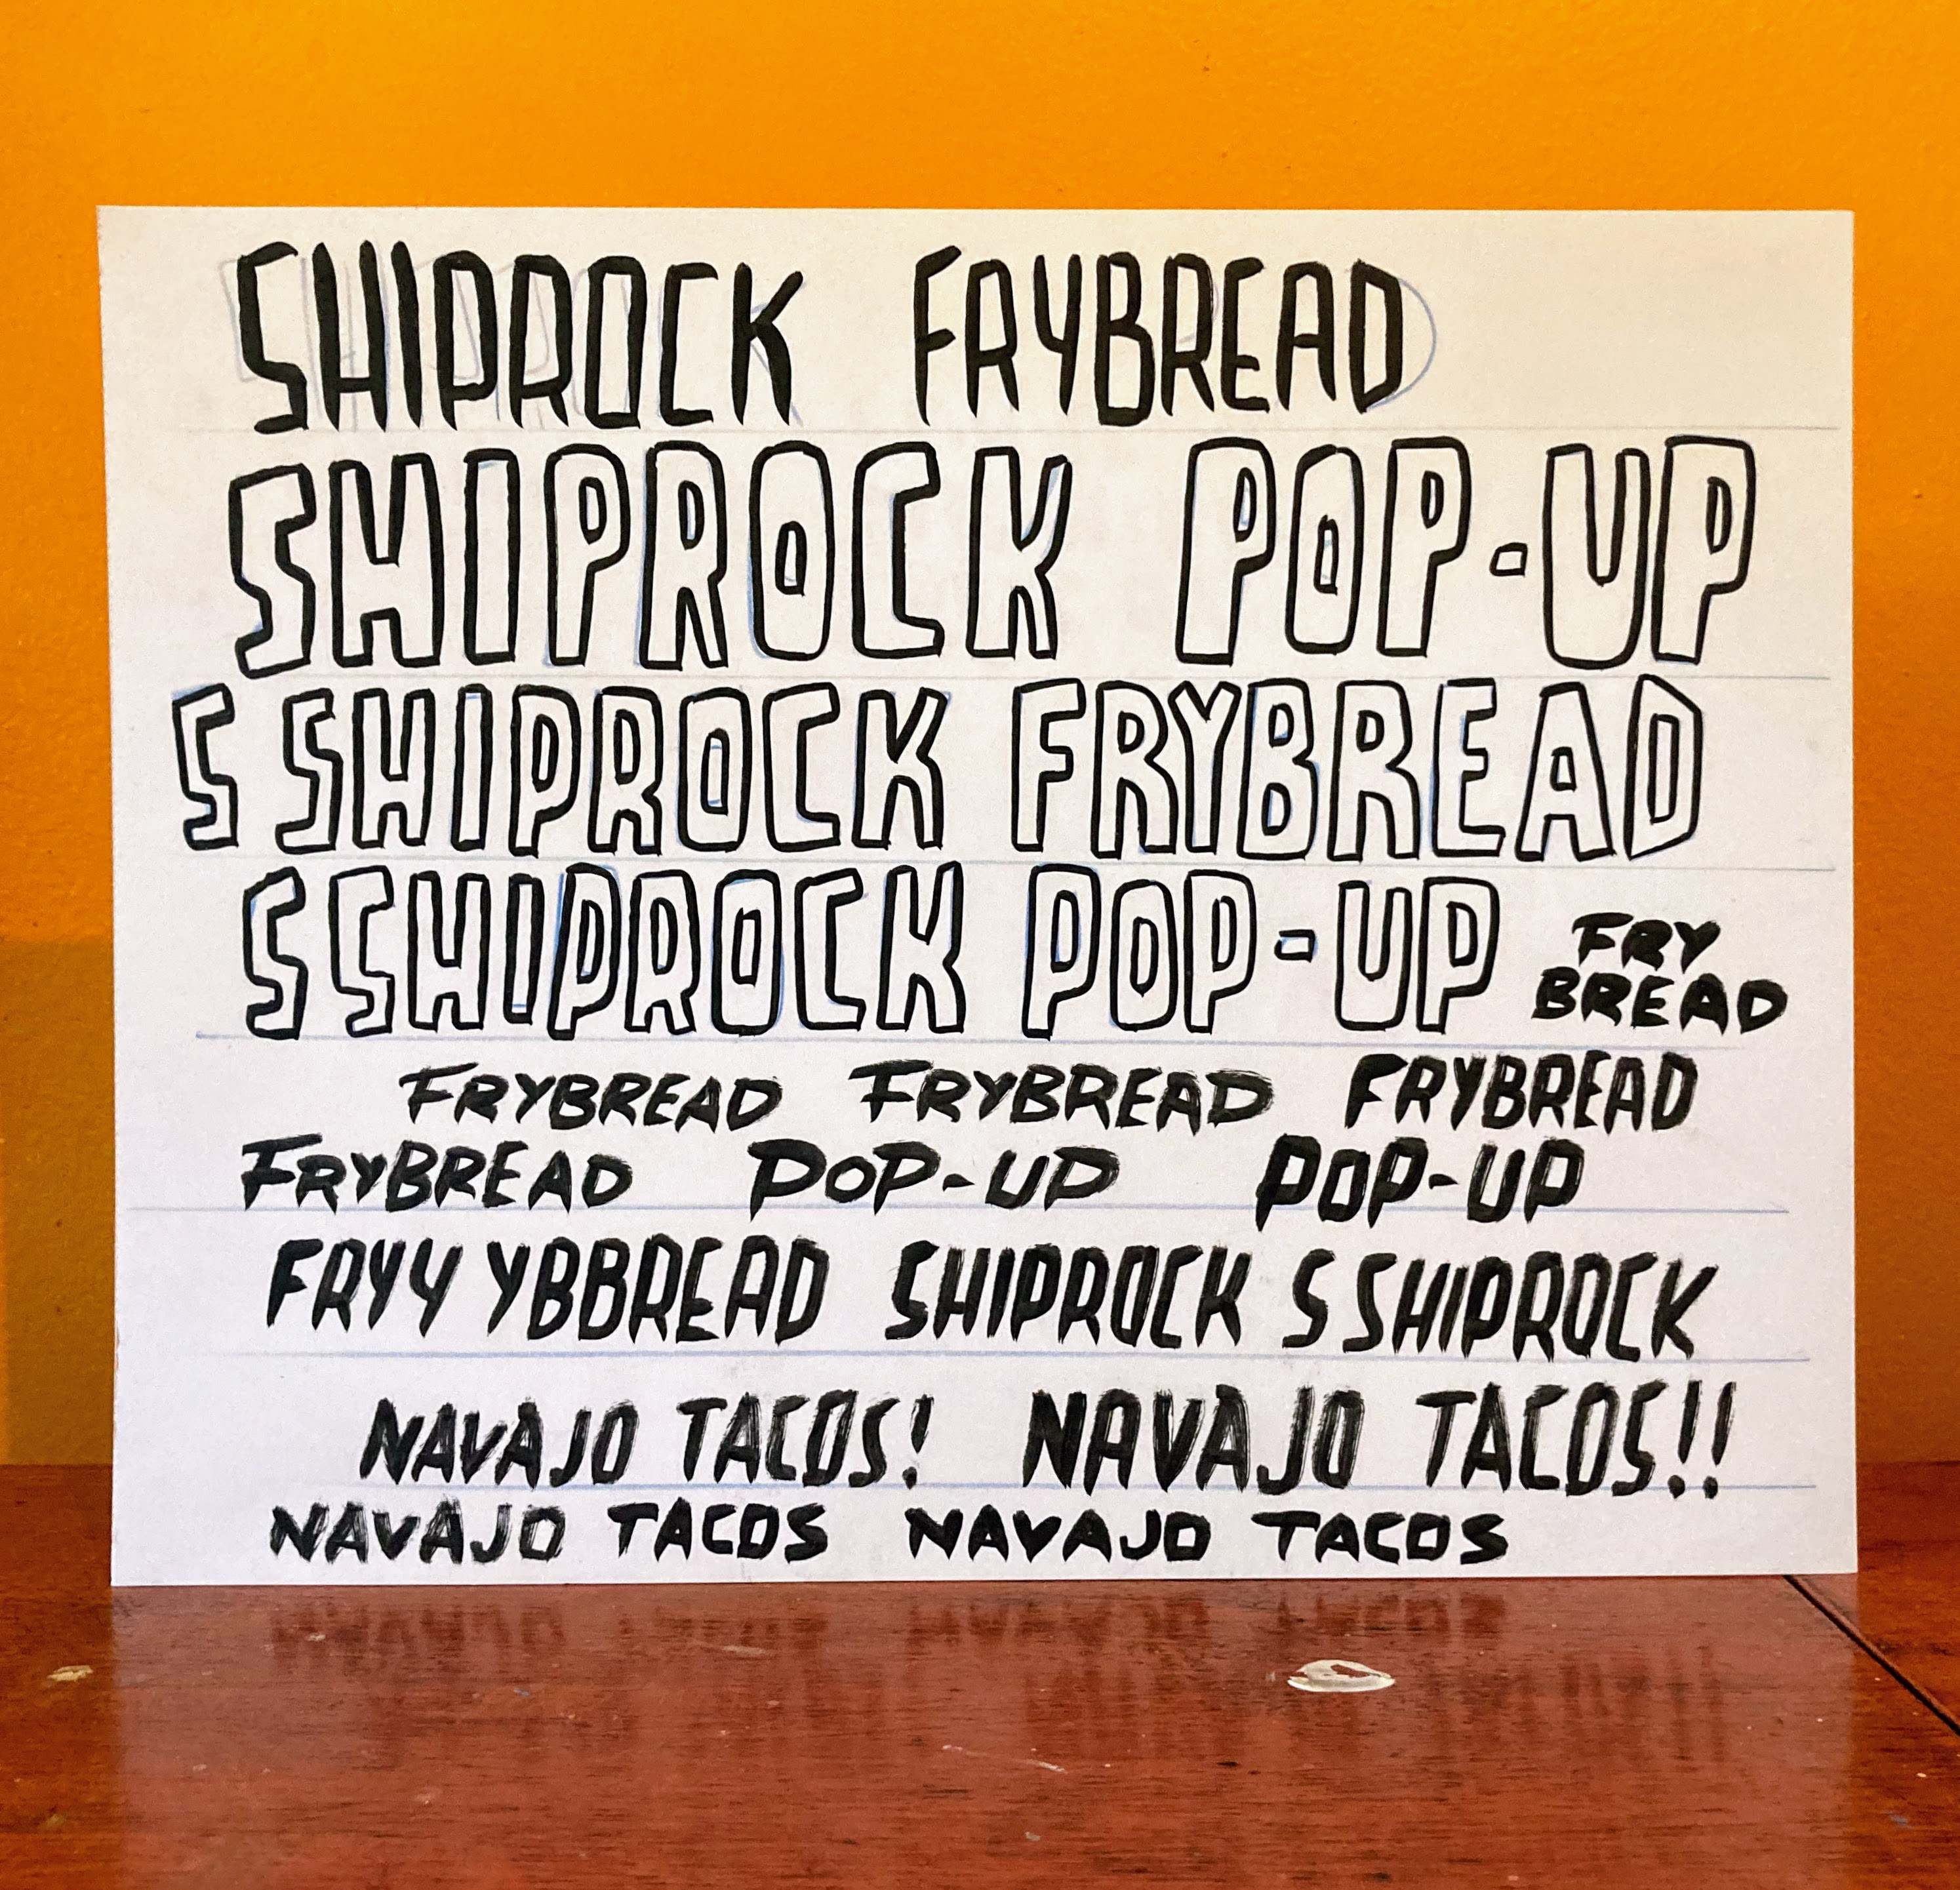 SHIPROCK FRYBREAD
SHIPROCK POP-UP
S SHIPROCK FRYBREAD
S SHIPROCK POP-UP FRY
BREAD
FRYBREAD FRYBREAD FRYBREAD
FRYBREAD POP-UP POP-UP
FRYY YBBREAD SHIPROCK S SHIPROCK
NAVAJO TACOS! NAVAJO TACOS!!
NAVAJO TACOS NAVAJO TACOS